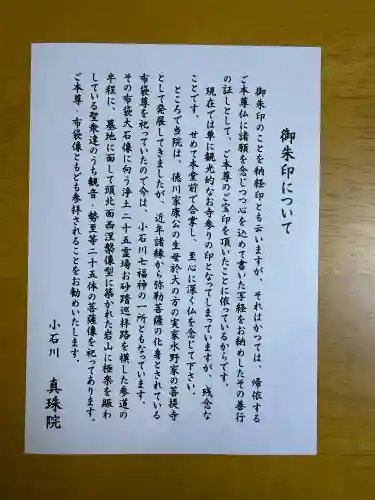 御朱印について
御朱印のことを納経印とも云いますが、それはかつては、帰依する
ご本尊仏に諸願を念じつつ心を込めて書いた写経をお納めしたその善行
の証しとして、ご本尊のご宝印を頂いたことに依っているからです。
現在では単に観光的なお寺参りの印となってしまっていますが、残念な
ことです。せめて本堂前で合掌し、至心に深く仏を念じて下さい。
ところで当院は、徳川家康公の生母於大の方の実家水野家の菩提寺
として発展してきましたが、近年諸縁から弥勒菩薩の化身とされている
布袋尊を祀っていたので今は、小石川七福神の一所ともなっています。
その布袋大石像に向う浄土二十五霊場お砂踏巡拝路を模した参道の
半程に、墓地に面して頭北面西涅槃像型に築かれた岩山に極楽を賑わ
している聖衆達のうち観音・勢至等二十五体の菩薩像を祀ってあります。
ご本尊・布袋像ともども参拝されることをお勧めいたします。
小石川 真珠院